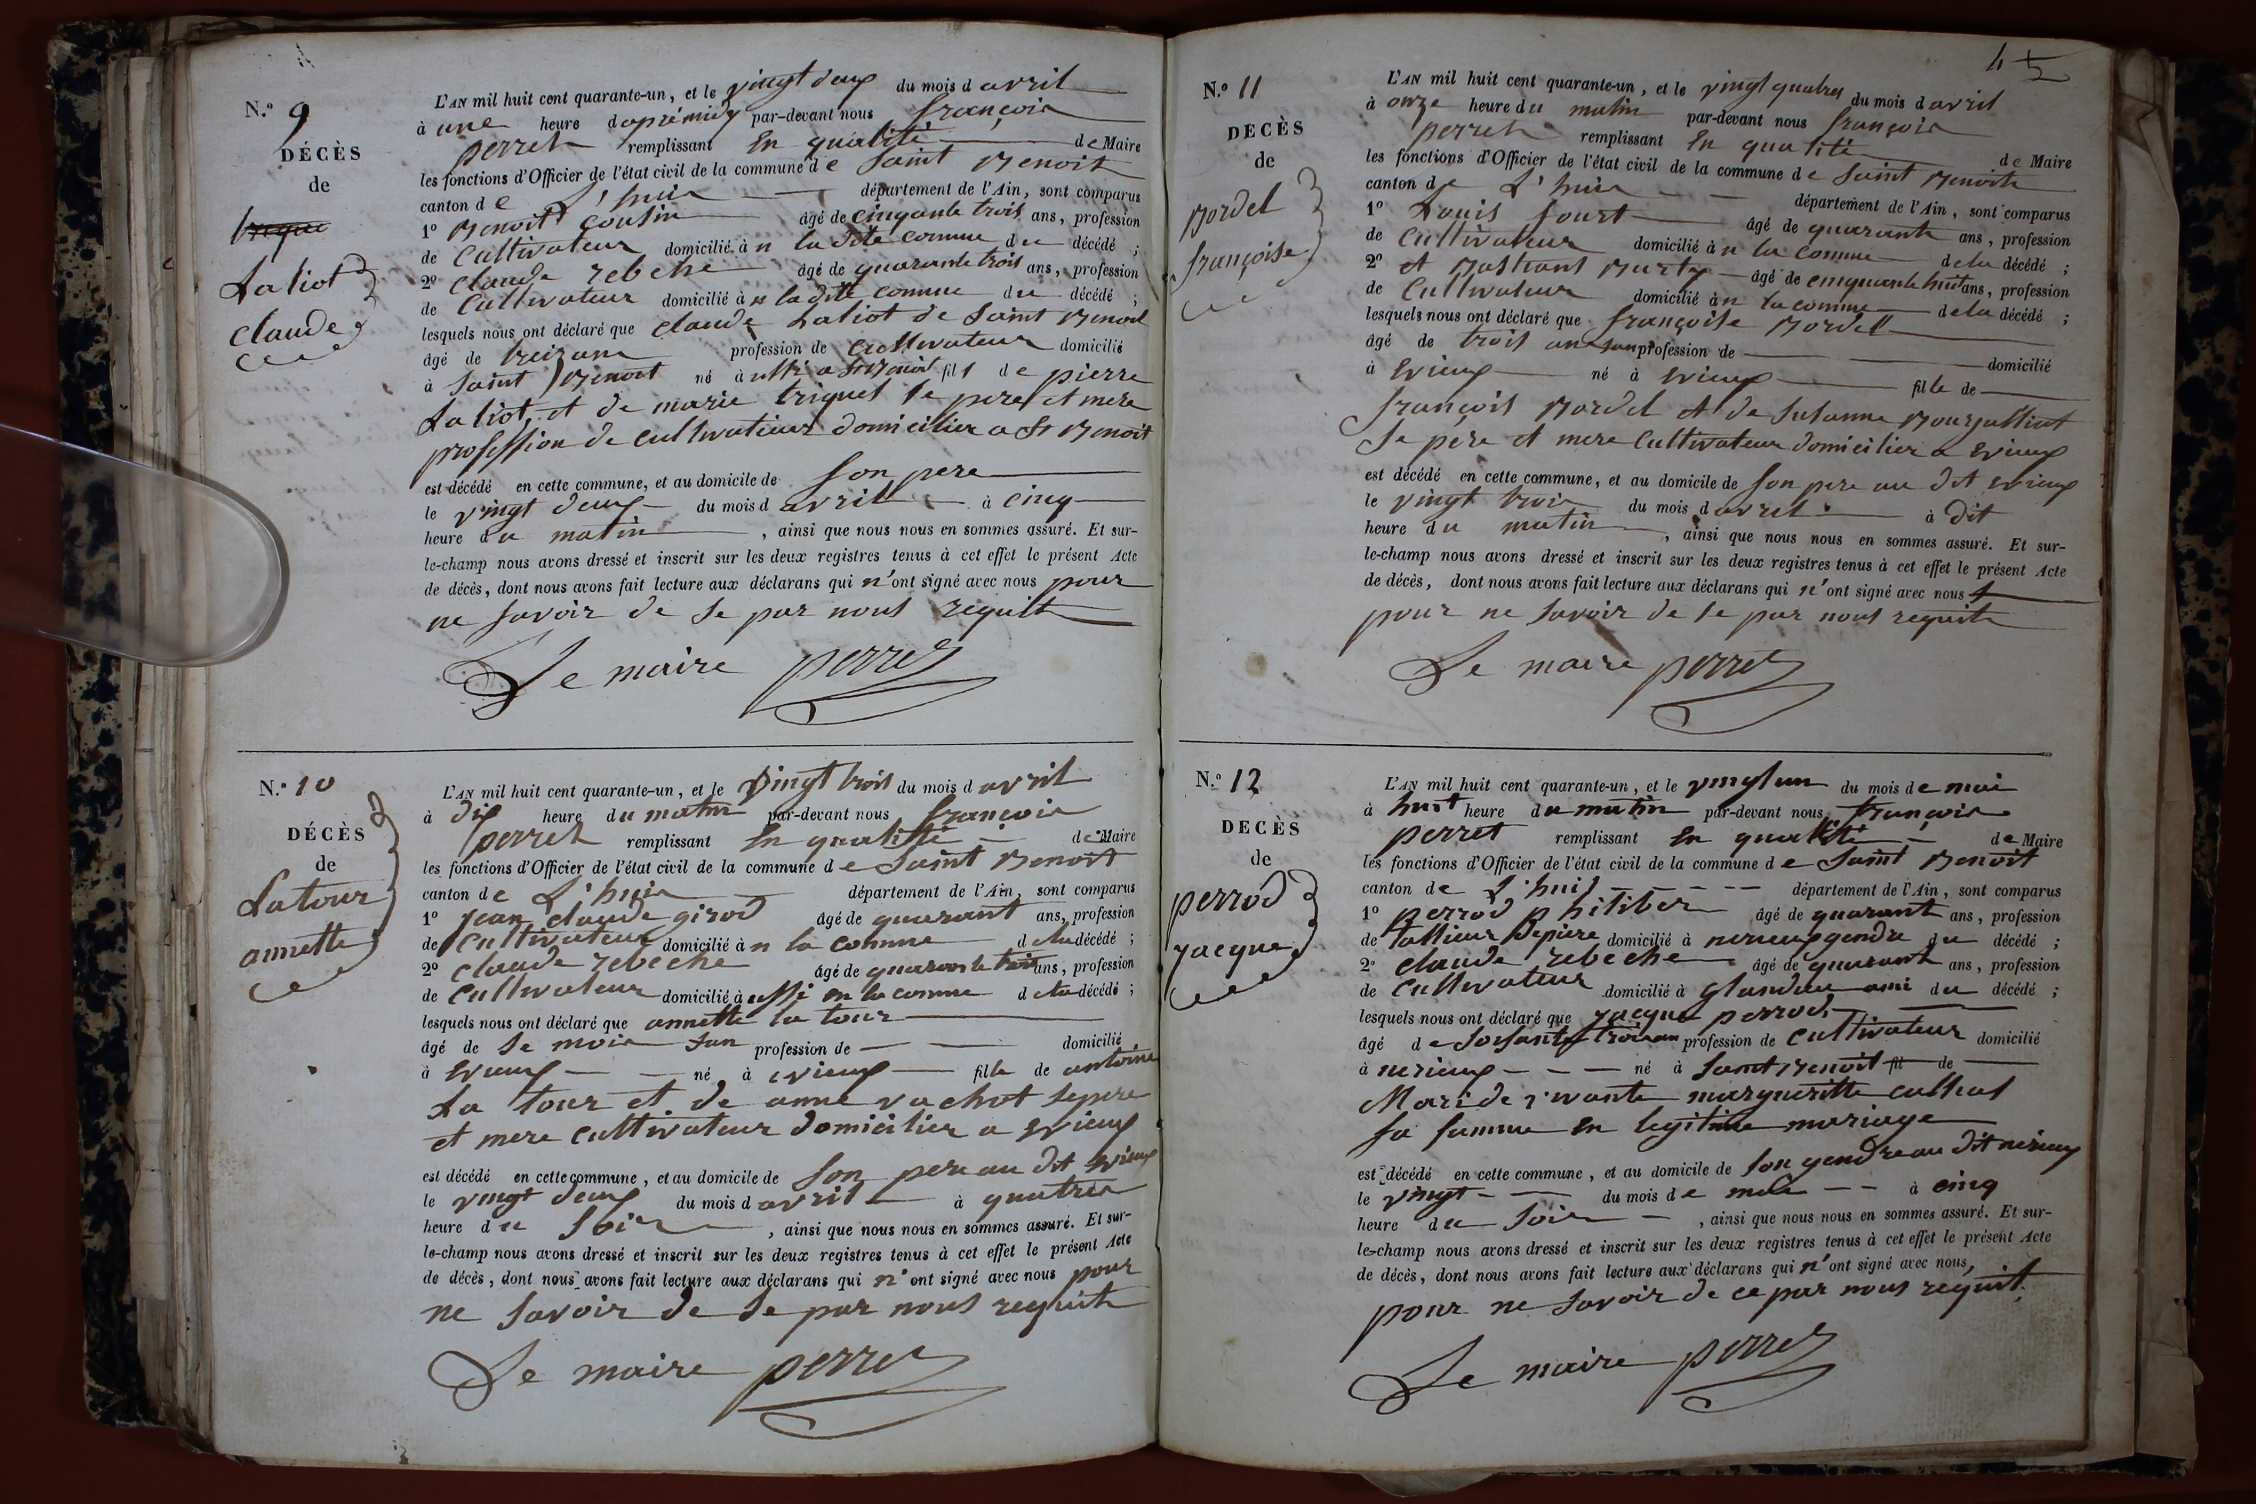 N.º 9
DÉCÈS
de
Laliot
claude
L'AN mil huit cent quarante-un, et le vingt deux du mois d avril
à une heure d aprémidy par-devant nous françois
perret remplissant En qualité de Maire
les fonctions d'Officier de l'état civil de la commune de Saint Benoit
canton de L'huis département de l'Ain, sont comparus
1º Benoit Cousin âgé de cinquante trois ans, profession
de Cultivateur domicilié à n la dite commune du décédé ;
2º claude rebeche âgé de quarante trois ans, profession
de Cultivateur domicilié à n la dite commune du décédé ;
lesquels nous ont déclaré que claude Laliot de Saint Benoit
âgé de treize ans profession de Cultivateur domicilié
à Saint Benoit né à St Benoit fils de pierre
Laliot et de marie triquet le pere et mere
profession de cultivateur domicilier a St Benoit
est décédé en cette commune, et au domicile de Son pere
le vingt deux du mois d avril à cinq
heure du matin, ainsi que nous nous en sommes assuré. Et sur-
le-champ nous avons dressé et inscrit sur les deux registres tenus à cet effet le présent Acte
de décès, dont nous avons fait lecture aux déclarans qui n'ont signé avec nous pour
ne savoir de se par nous requit
Le maire perret
N.º 10
DÉCÈS
de
Latour
annette
L'AN mil huit cent quarante-un, et le vingt trois du mois d avril
à dix heure du matin par-devant nous françois
perret remplissant En qualité de Maire
les fonctions d'Officier de l'état civil de la commune de Saint Benoit
canton de L'huis département de l'Ain, sont comparus
1º Jean claude girod âgé de quarant ans, profession
de Cultivateur domicilié à n la commune de la décédé ;
2º claude rebeche âgé de quarante trois ans, profession
de Cultivateur domicilié à ussi en la comune de la décédé ;
lesquels nous ont déclaré que annette la tour
âgé de se mois san profession de domicilié
à Evieux né à evieux fille de antoine
La tour et de anne vachot se pere
et mere cultivateur domicilier a Evieux
est décédé en cette commune, et au domicile de Son pere au dit Evieux
le vingt deux du mois d avril à quatres
heure du Soir, ainsi que nous nous en sommes assuré. Et sur-
le-champ nous avons dressé et inscrit sur les deux registres tenus à cet effet le présent Acte
de décès, dont nous avons fait lecture aux déclarans qui n'ont signé avec nous pour
ne savoir de se par nous requit
Le maire perret
45
N.º 11
DÉCÈS
de
Bordel
françoise
L'AN mil huit cent quarante-un, et le vingt quatres du mois d avril
à onze heure du matin par-devant nous françois
perret remplissant En qualité de Maire
les fonctions d'Officier de l'état civil de la commune de Saint Benoit
canton de L'huis département de l'Ain, sont comparus
1º Louis âgé de quarante ans, profession
de Cultivateur domicilié à n la commune de la décédé ;
2º et âgé de cinquante huit ans, profession
de Cultivateur domicilié à n la comune de la décédé ;
lesquels nous ont déclaré que françoise Bordel
âgé de trois an san profession de domicilié
à Evieux né à Evieux fille de
françois Bordel et de Susanne
Se pere et mere Cultivateur domicilier a Evieux
est décédé en cette commune, et au domicile de Son pere au dit Evieux
le vingt trois du mois d avril à dit
heure du matin, ainsi que nous nous en sommes assuré. Et sur-
le-champ nous avons dressé et inscrit sur les deux registres tenus à cet effet le présent Acte
de décès, dont nous avons fait lecture aux déclarans qui n'ont signé avec nous
pour ne savoir de se par nous requit
Le maire perret
N.º 12
DÉCÈS
de
perrod
Jacque
L'AN mil huit cent quarante-un, et le vingt un du mois de mai
à huit heure du matin par-devant nous françois
perret remplissant En qualité de Maire
les fonctions d'Officier de l'état civil de la commune de Saint Benoit
canton de L'huis département de l'Ain, sont comparus
1º perrod philiber âgé de quarant ans, profession
de tallieur depiere domicilié à nerieux gendre du décédé ;
2º claude rebeche âgé de quarant ans, profession
de Cultivateur domicilié à glandieu ami du décédé ;
lesquels nous ont déclaré que Jacque perrod
âgé de soisante trois an profession de Cultivateur domicilié
à nerieux né à Saint Benoit fil de
Mari de vivante margueritte
sa famme En legitime mariage
est décédé en cette commune, et au domicile de Son gendre au dit nerieux
le vingt du mois de mai à cinq
heure du Soir, ainsi que nous nous en sommes assuré. Et sur-
le-champ nous avons dressé et inscrit sur les deux registres tenus à cet effet le présent Acte
de décès, dont nous avons fait lecture aux déclarans qui n'ont signé avec nous,
pour ne savoir de ce par nous requit.
Le maire perret